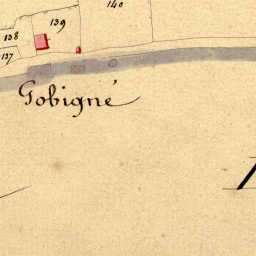 140
139
138
137
Gobigné